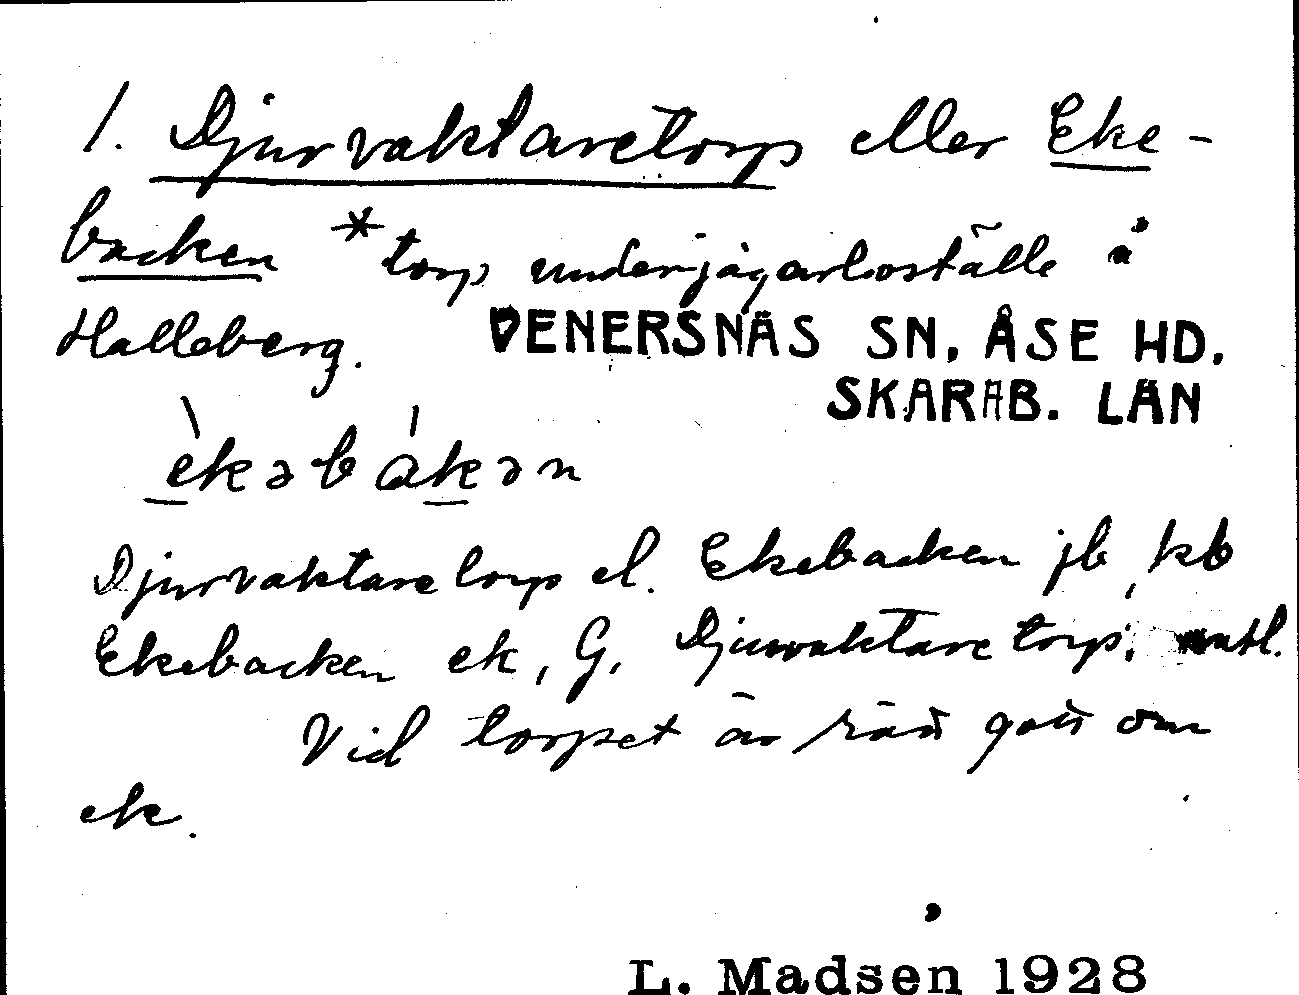 1. Djurvaktaretorp eller Eke-
backen * torp underjägarboställe å
Halleberg. VENERSNÄS SN. ÅSE HD.
SKARAB. LÄN
èkəbákən
Djurvaktaretorp el. Ekebacken jb, kb
Ekebacken ek, G, Djurvaktaretorp, mtl.
Vid torpet är rätt gott om
ek.
L. Madsen 1928